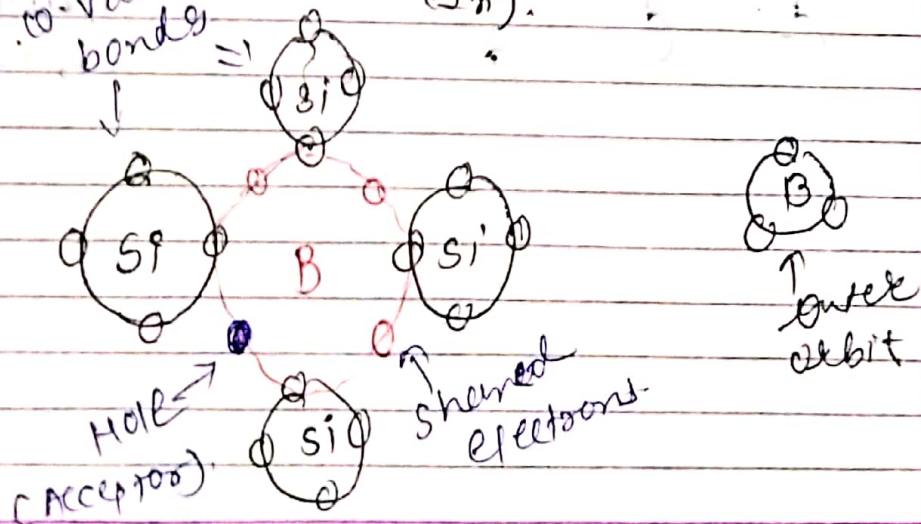 bonds
(In).
Si
Si
B
Si
B
outer
orbit
Hole
(Acceptor).
Si
Shared
electrons.